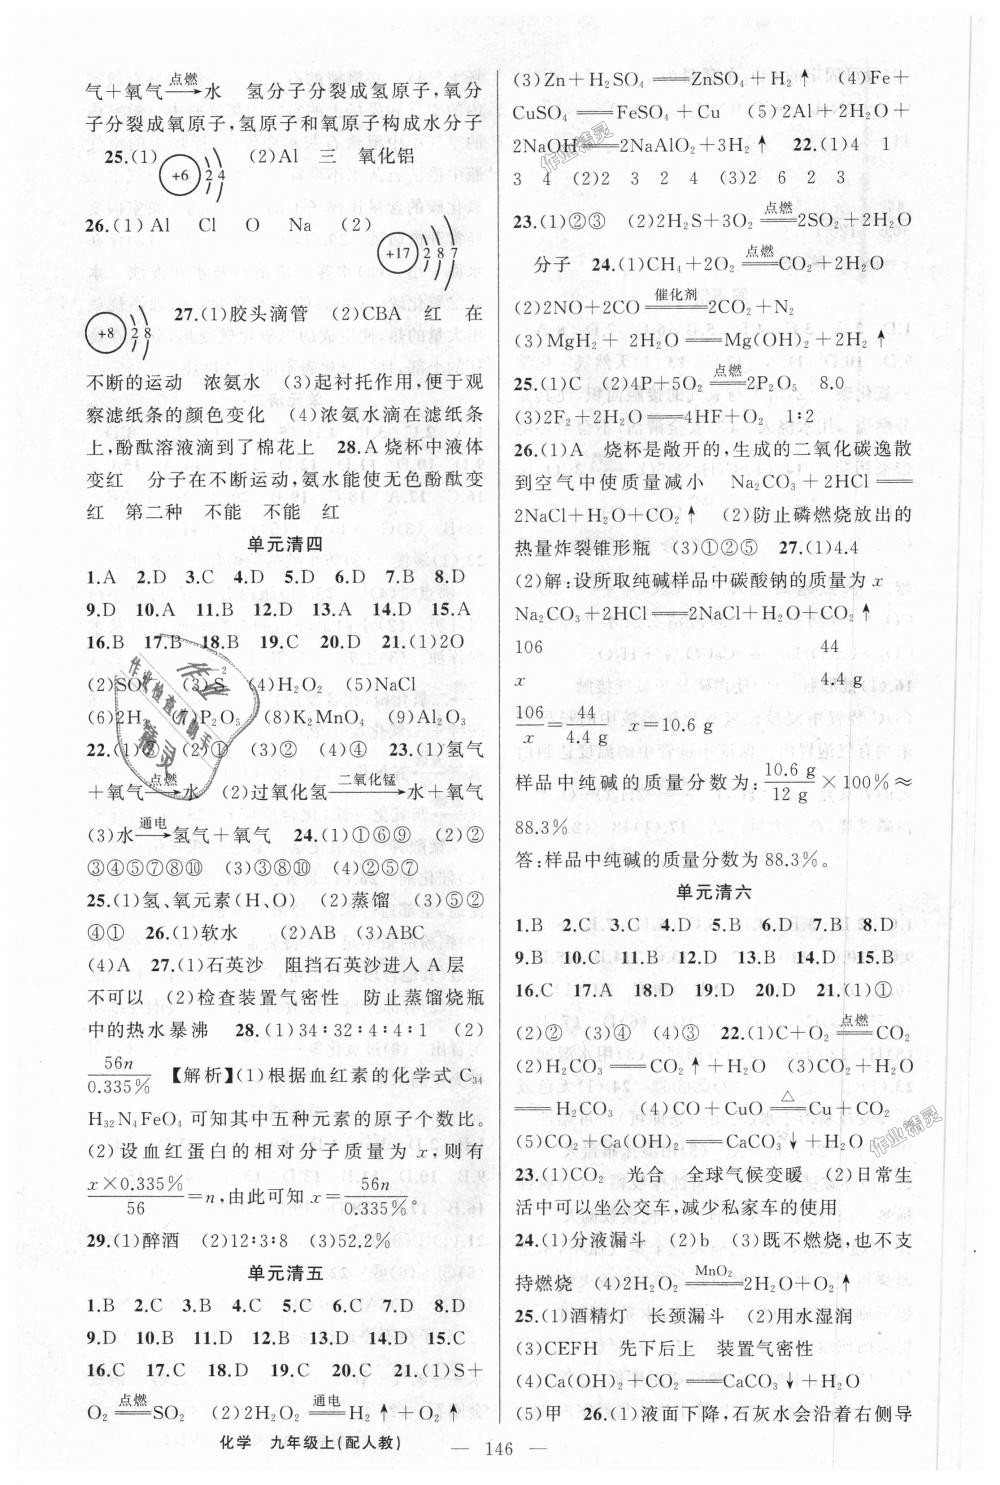 气+氧气—点燃→水　氢分子分裂成氢原子,氧分
子分裂成氧原子,氢原子和氧原子构成水分子
25.(1) +6 2 4　(2)Al　三　氧化铝
26.(1)Al　Cl　O　Na　(2) +17 2 8 7
+8 2 8　27.(1)胶头滴管　(2)CBA　红　在
不断的运动　浓氨水　(3)起衬托作用,便于观
察滤纸条的颜色变化　(4)浓氨水滴在滤纸条
上,酚酞溶液滴到了棉花上　28.A 烧杯中液体
变红　分子在不断运动,氨水能使无色酚酞变
红　第二种　不能　不能　红
单元清四
1.A　2.D　3.C　4.D　5.D　6.D　7.B　8.D
9.D　10.A　11.B　12.D　13.A　14.D　15.A
16.B　17.B　18.B　19.C　20.D　21.(1)2O
(2)SO₂　(3)S　(4)H₂O₂　(5)NaCl
(6)2H　P₂O₅　(8)K₂MnO₄　(9)Al₂O₃
22.(1)③　(2)①　(3)②　(4)④　23.(1)氢气
+氧气—点燃→水　(2)过氧化氢—二氧化锰→水+氧气
(3)水—通电→氢气+氧气　24.(1)①⑥⑨　(2)②
③④⑤⑦⑧⑩　(3)③⑧⑩　(4)②⑤⑦
25.(1)氢、氧元素(H、O)　(2)蒸馏　(3)⑤②
④①　26.(1)软水　(2)AB　(3)ABC
(4)A　27.(1)石英沙　阻挡石英沙进入 A 层
不可以　(2)检查装置气密性　防止蒸馏烧瓶
中的热水暴沸　28.(1)34∶32∶4∶4∶1　(2)
56n/0.335%　【解析】(1)根据血红素的化学式 C₃₄
H₃₂N₄FeO₄ 可知其中五种元素的原子个数比。
(2)设血红蛋白的相对分子质量为 x,则有
x×0.335%/56=n,由此可知 x=56n/0.335%
29.(1)醉酒　(2)12∶3∶8　(3)52.2%
单元清五
1.B　2.C　3.B　4.C　5.C　6.C　7.D　8.D
9.D　10.B　11.B　12.B　13.D　14.D　15.C
16.C　17.C　18.D　19.C　20.C　21.(1)S+
O₂ ═点燃═ SO₂　(2)2H₂O ═通电═ 2H₂↑+O₂↑
(3)Zn+H₂SO₄═══ZnSO₄+H₂↑　(4)Fe+
CuSO₄═══FeSO₄+Cu　(5)2Al+2H₂O+
2NaOH═══2NaAlO₂+3H₂↑　22.(1)4　1
3　4　(2)2　3　2　4　(3)2　6　2　3
23.(1)②③　(2)2H₂S+3O₂ ═点燃═ 2SO₂+2H₂O
分子　24.(1)CH₄+2O₂ ═点燃═ CO₂+2H₂O
(2)2NO+2CO ═催化剂═ 2CO₂+N₂
(3)MgH₂+2H₂O═══Mg(OH)₂+2H₂↑
25.(1)C　(2)4P+5O₂ ═点燃═ 2P₂O₅　8.0
(3)2F₂+2H₂O═══4HF+O₂　1∶2
26.(1)A　烧杯是敞开的,生成的二氧化碳逸散
到空气中使质量减小　Na₂CO₃+2HCl═══
2NaCl+H₂O+CO₂↑　(2)防止磷燃烧放出的
热量炸裂锥形瓶　(3)①②⑤　27.(1)4.4
(2)解:设所取纯碱样品中碳酸钠的质量为 x
Na₂CO₃+2HCl═══2NaCl+H₂O+CO₂↑
106　44
x　4.4 g
106/x=44/4.4 g　x=10.6 g
样品中纯碱的质量分数为:10.6 g/12 g×100%≈
88.3%
答:样品中纯碱的质量分数为 88.3%。
单元清六
1.B　2.C　3.C　4.D　5.B　6.D　7.B　8.D
9.B　10.C　11.B　12.D　13.B　14.D　15.B
16.C　17.A　18.D　19.D　20.D　21.(1)①
(2)②　(3)④　(4)③　22.(1)C+O₂ ═点燃═ CO₂
(2)H₂CO₃═══CO₂↑+H₂O　(3)CO₂+H₂O
═══H₂CO₃　(4)CO+CuO ═△═ Cu+CO₂
(5)CO₂+Ca(OH)₂═══CaCO₃↓+H₂O
23.(1)CO₂　光合　全球气候变暖　(2)日常生
活中可以坐公交车,减少私家车的使用
24.(1)分液漏斗　(2)b　(3)既不燃烧,也不支
持燃烧　(4)2H₂O₂ ═MnO₂═ 2H₂O+O₂↑
25.(1)酒精灯　长颈漏斗　(2)用水湿润
(3)CEFH　先下后上　装置气密性
(4)Ca(OH)₂+CO₂═══CaCO₃↓+H₂O
(5)甲　26.(1)液面下降,石灰水会沿着右侧导
化学　九年级上(配人教)　— 146 —
作业精灵
作业检查小助手
作业
精灵
作业精灵